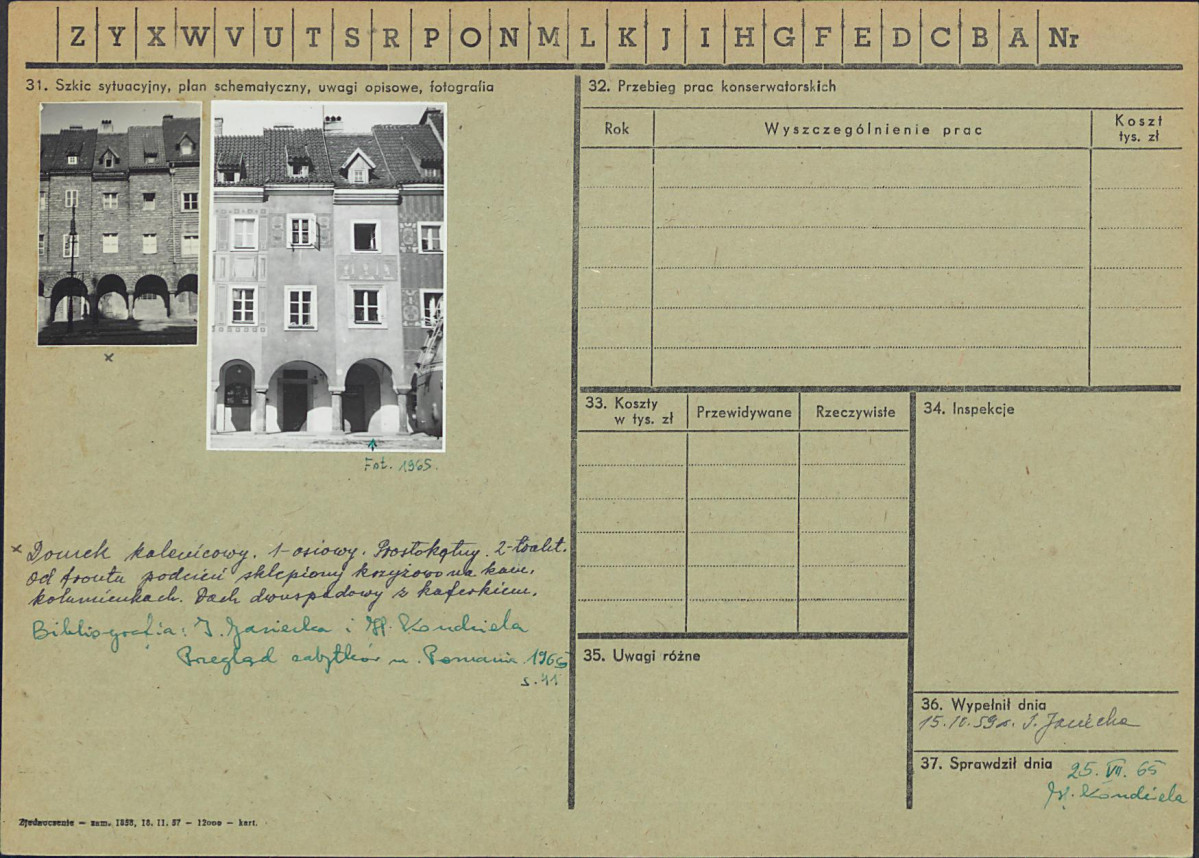 Z Y X W V U T S R P O N M L K J I H G F E D C B A Nr
31. Szkic sytuacyjny, plan schematyczny, uwagi opisowe, fotografia
x
Fot. 1965.
x Domek kalenicowy. 1-osiowy. Prostokątny. 2-trakt.
od frontu podcień sklepiony krzyżowo na kam.
kolumienkach. Dach dwuspadowy z kaferkiem.
Bibliografia: I. Jasiecka i H. Kondziela
Przegląd zabytków m. Poznania 1965
s. 41
Zjednoczenie — zam. 1858, 18. II. 57 — 12000 — kart.
32. Przebieg prac konserwatorskich
Rok Wyszczególnienie prac Koszt
tys. zł
33. Koszty
w tys. zł Przewidywane Rzeczywiste
34. Inspekcje
35. Uwagi różne
36. Wypełnił dnia
15. IV. 59 r. I. Jasiecka
37. Sprawdził dnia
25. VII. 65
H. Kondziela